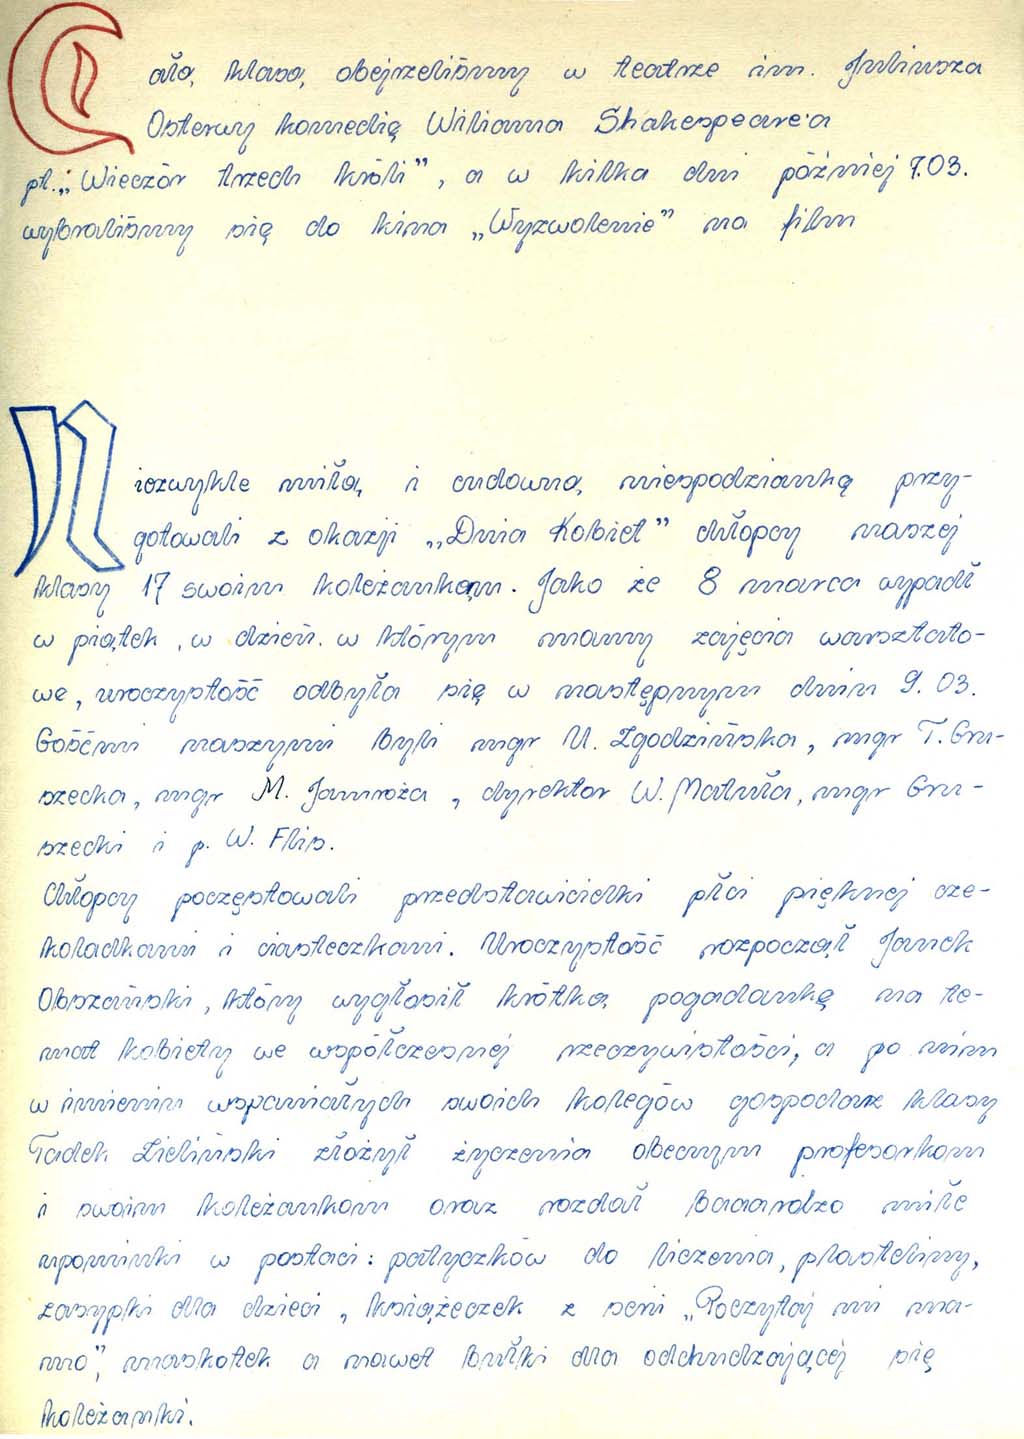 Całą klasą obejrzeliśmy w teatrze im. Juliusza
Osterwy komedię Wiliama Shakespeare'a
pt. „Wieczór trzech króli”, a w kilka dni później 7.03.
wybraliśmy się do kina „Wyzwolenie” na film
Niezwykle miłą i cudowną niespodziankę przy-
gotowali z okazji „Dnia Kobiet” chłopcy naszej
klasy 17 swoim koleżankom. Jako że 8 marca wypadł
w piątek, w dzień. w którym mamy zajęcia warsztato-
we, uroczystość odbyła się w następnym dniu 9. 03.
Gośćmi naszymi byli mgr U. Zgodzińska, mgr T. Gru-
szecka, mgr M. Jamroża, dyrektor W. Matuła, mgr Gru-
szecki i p. W. Flis.
Chłopcy poczęstowali przedstawicielki płci pięknej cze-
koladkami i ciasteczkami. Uroczystość rozpoczął Janek
Olszański, który wygłosił krótką pogadankę na te-
mat kobiety we współczesnej rzeczywistości, a po nim
w imieniu wspaniałych swoich kolegów gospodarz klasy
Tadek Zieliński złożył życzenia obecnym profesorkom
i swoim koleżankom oraz rozdał baaardzo miłe
upominki w postaci: patyczków do liczenia, plasteliny,
zasypki dla dzieci, książeczek z serii „Poczytaj mi ma-
mo”, maskotek a nawet bułki dla odchudzającej się
koleżanki.